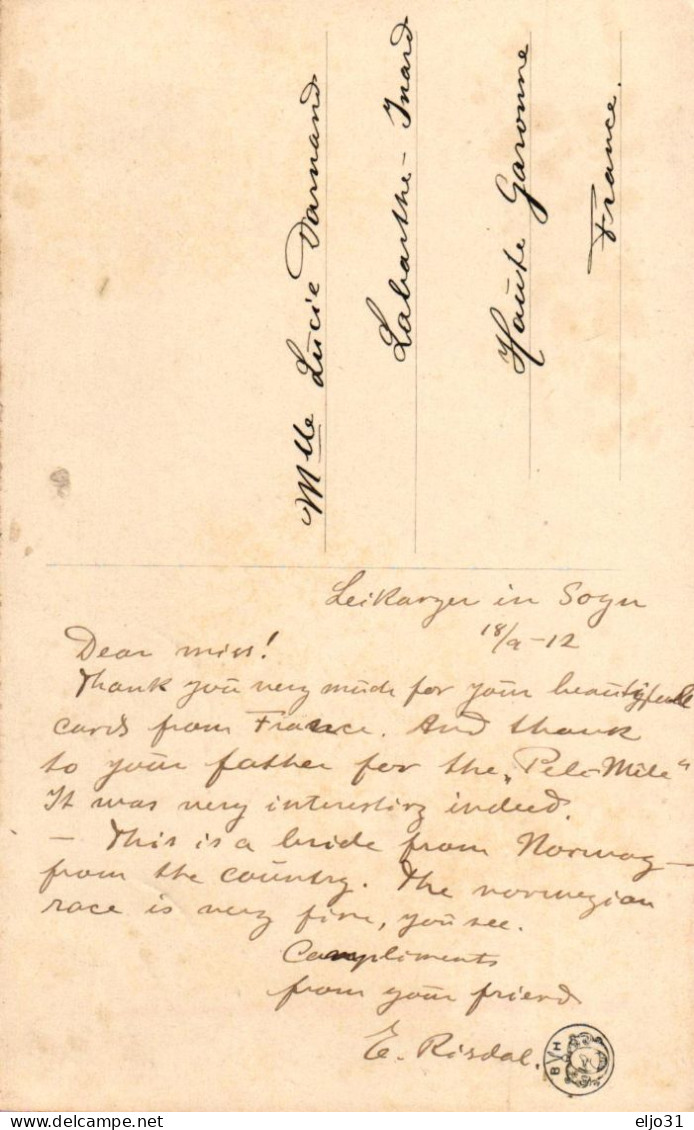 Mlle Lucie Darnand
Labarthe-Inard
Haute Garonne
France.
Leikanger in Sogn
18/9-12
Dear miss!
Thank you very much for your beautyfull
cards from France. And thank
to your father for the „Pele-Mêle"
It was very interesting indeed.
— This is a bride from Norway —
from the country. The norwegian
race is very fine, you see.
Compliments
from your friend
E. Risdal.
B V H
delcampe.net
eljo31